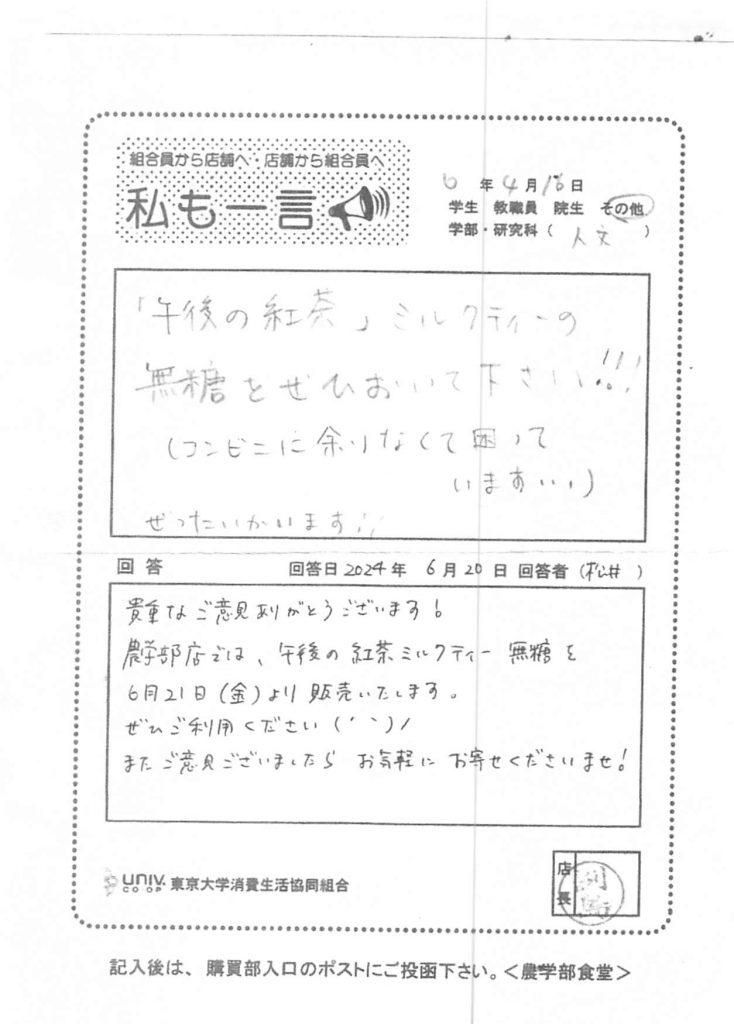 組合員から店舗へ・店舗から組合員へ
私も一言
6 年 4 月 18 日
学生 教職員 院生 その他
学部・研究科 ( 人文 )
「午後の紅茶」ミルクティーの
無糖をぜひおいて下さい!!!
(コンビニに余りなくて困って
います
ぜったいかいます
回答 回答日 2024 年 6 月 20 日 回答者 (松井 )
貴重なご意見ありがとうございます!
農学部店では、午後の紅茶ミルクティー 無糖を
6月21日(金)より 販売いたします。
ぜひご利用ください(´``)ノ
またご意見ございましたら お気軽に お寄せくださいませ!
univ. CO-OP 東京大学消費生活協同組合
店長
記入後は、購買部入口のポストにご投函下さい。<農学部食堂>